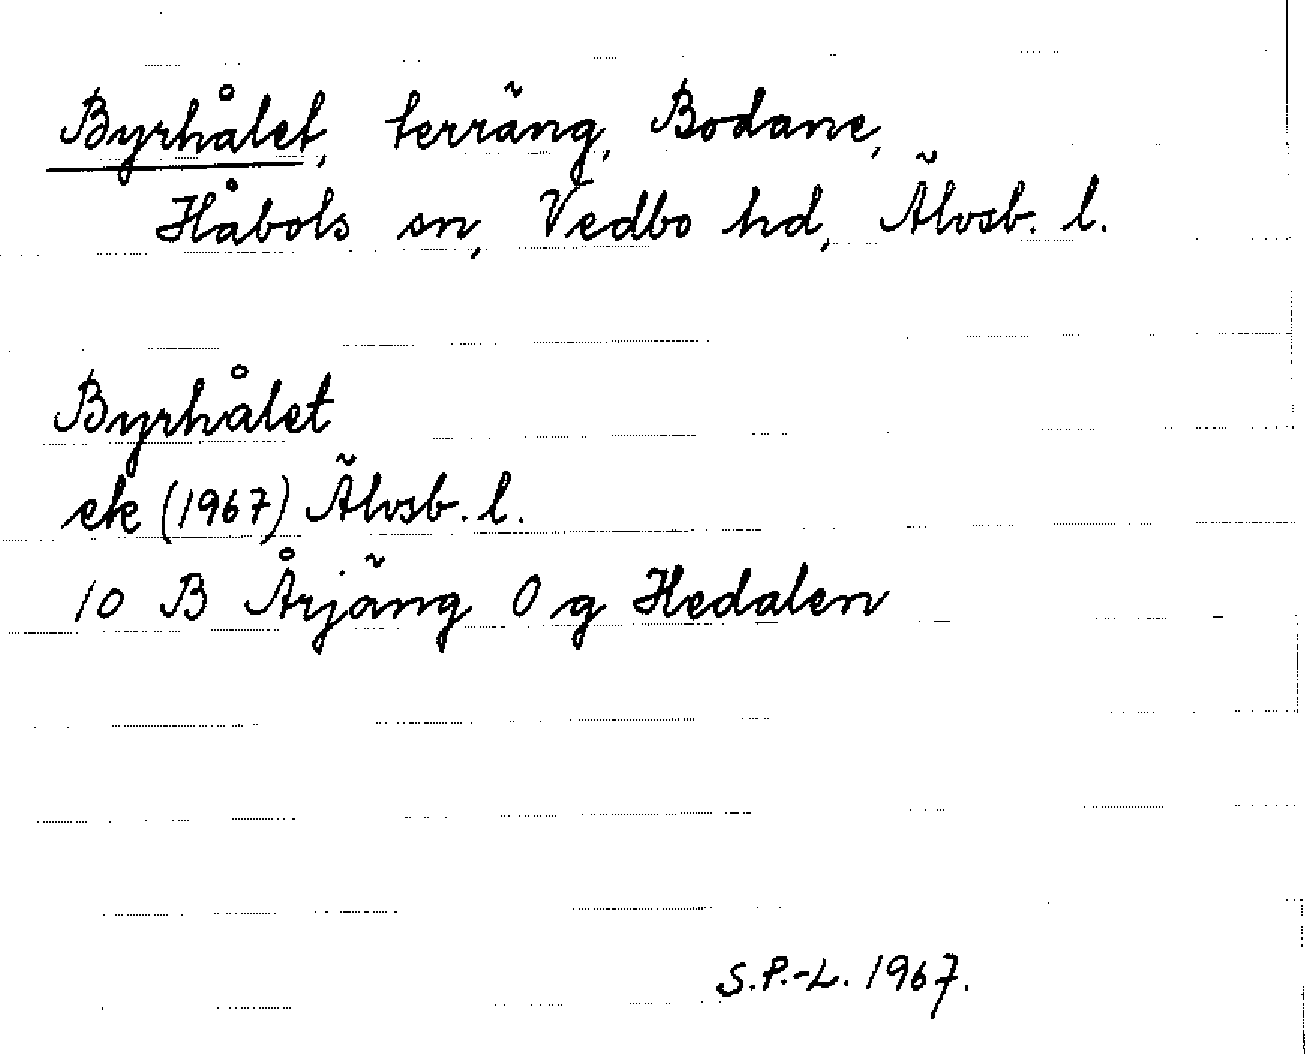 Byrhålet, terräng, Bodane,
Håbols sn, Vedbo hd, Älvsb. l.
Byrhålet
ek (1967) Älvsb. l.
10 B Årjäng 0 g Hedalen
S.P.-L. 1967.